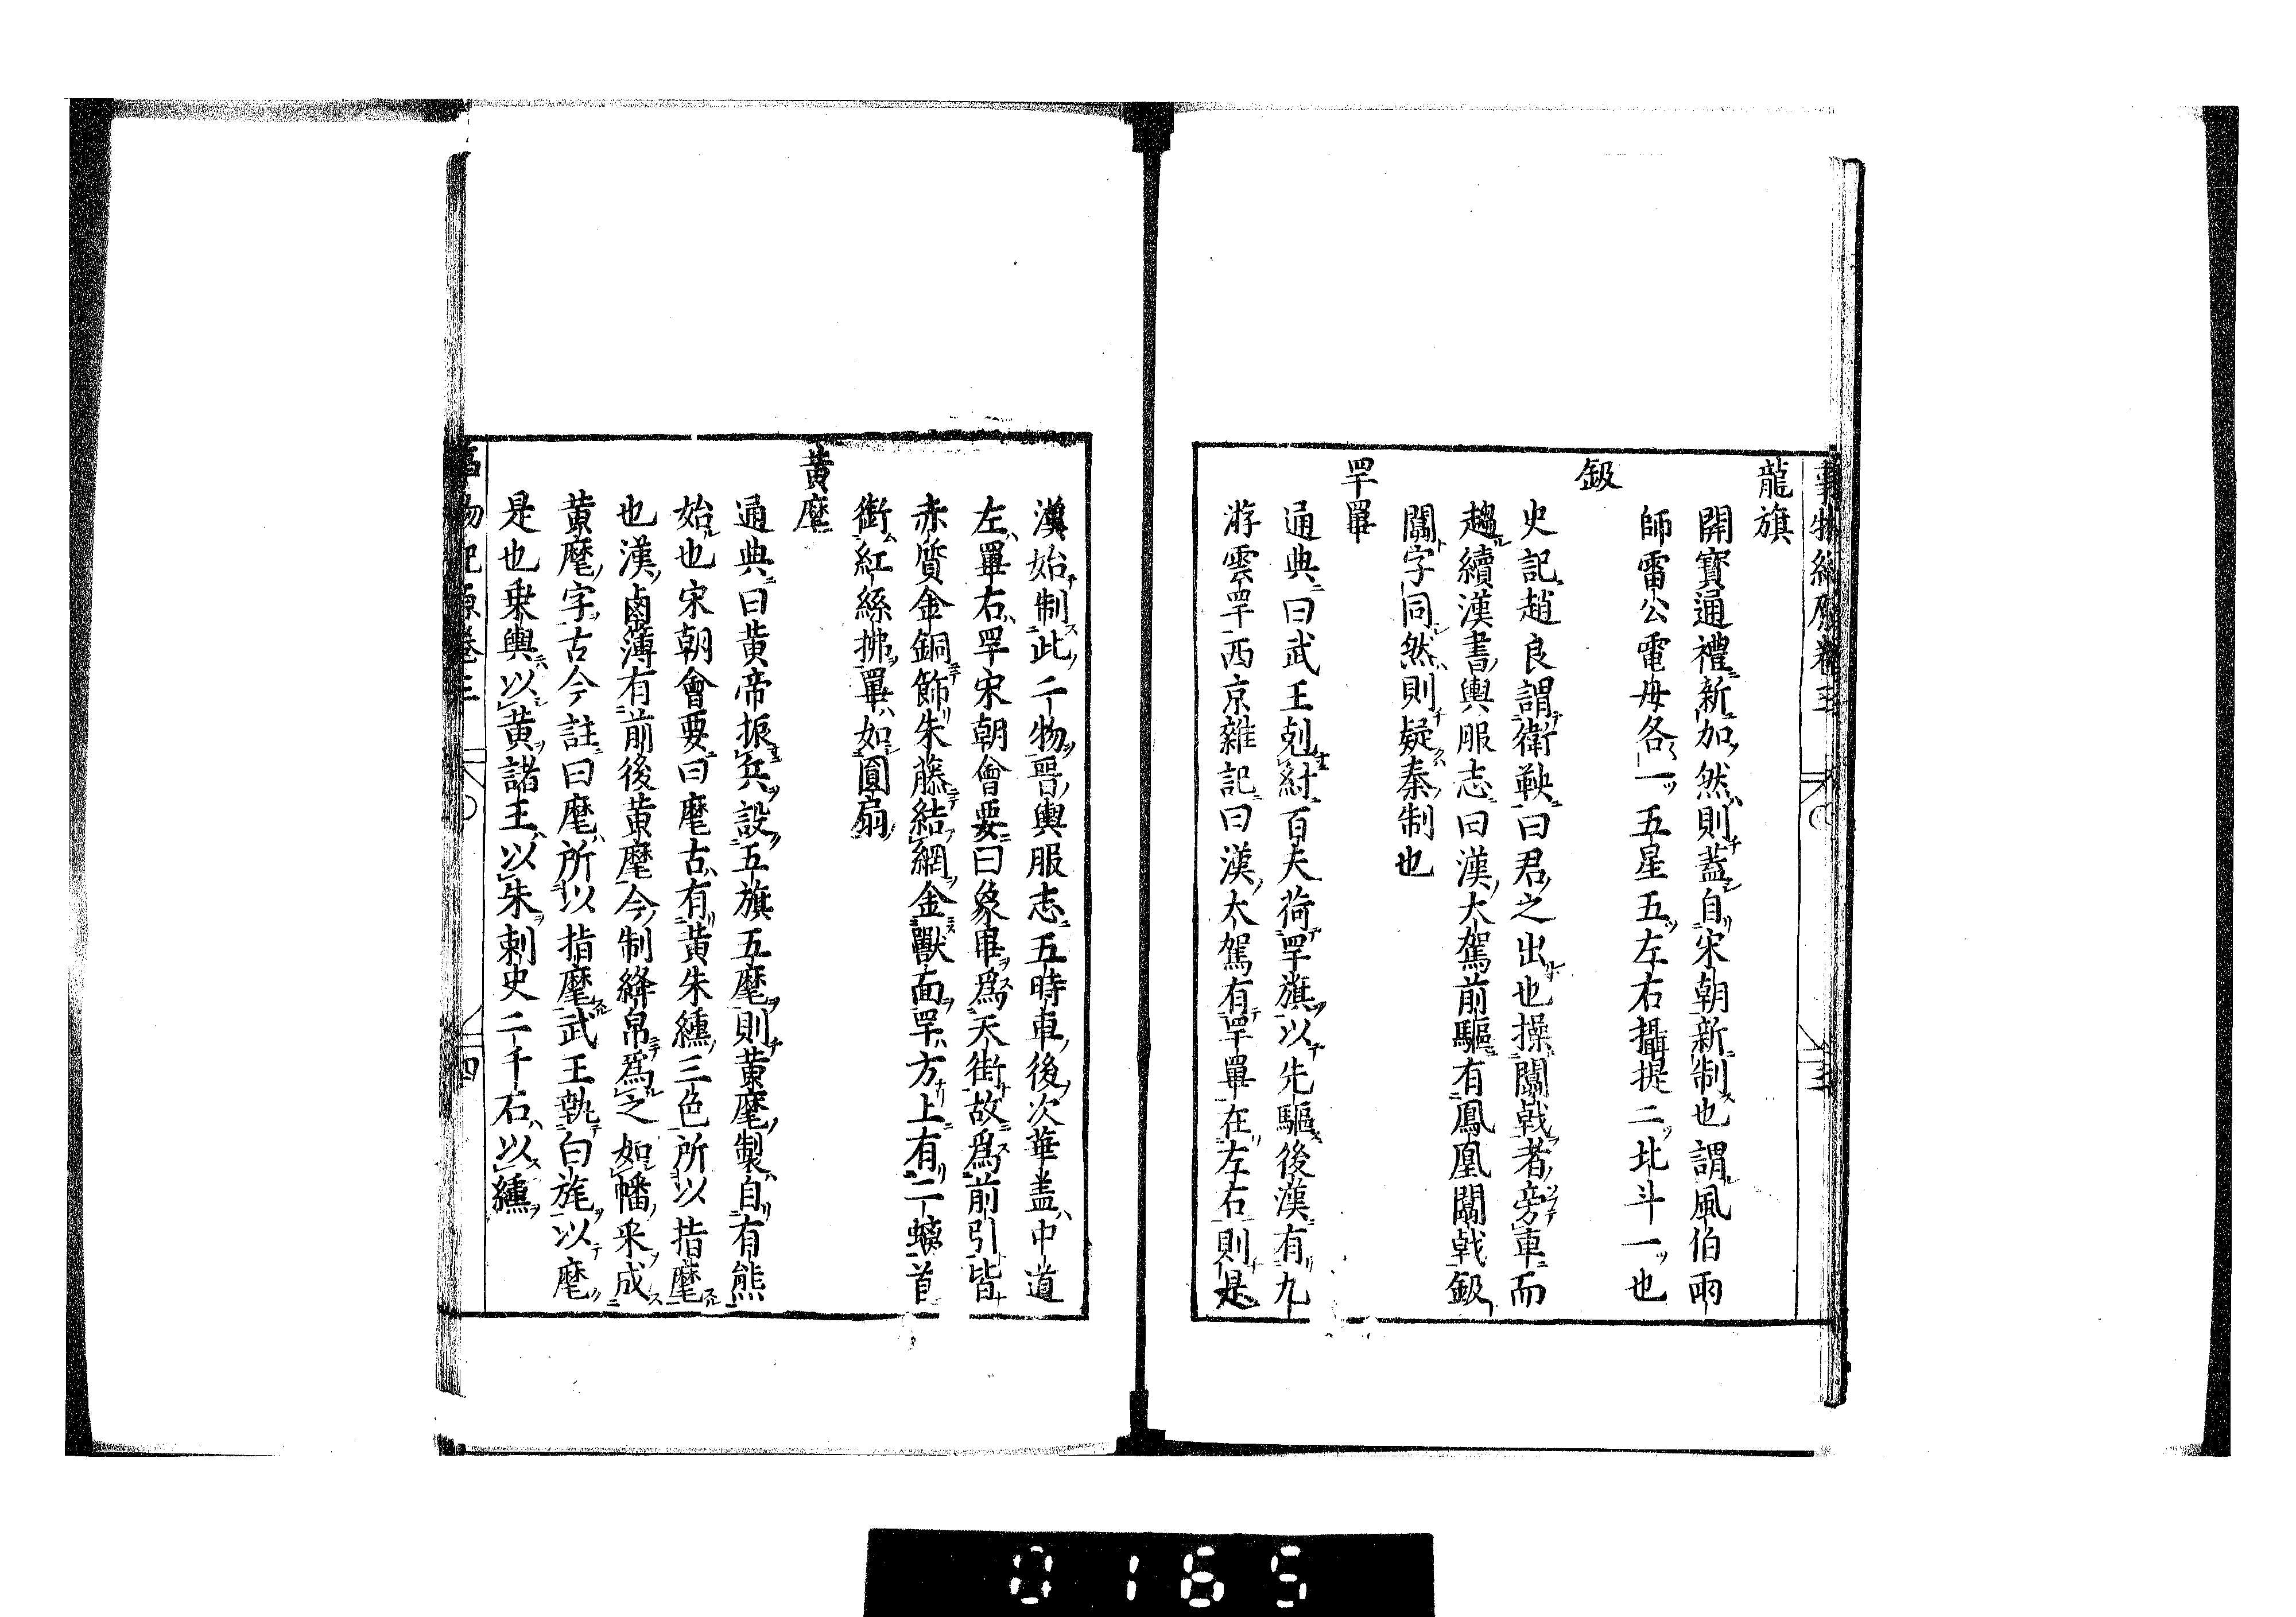 事物紀原卷三
龍旗
開寶通禮新加然則蓋自宋朝新制也謂風伯雨
師雷公電母各一五星五左右攝提二北斗一也
鈒
史記趙良謂衛鞅曰君之出也操闟戟者旁車而
趨續漢書輿服志曰漢大駕前驅有鳳凰闟戟鈒
闟字同然則疑秦制也
罕罼
通典曰武王剋紂百夫荷罕旗以先驅後漢有九
游雲罕西京雜記曰漢大駕有罕罼在左右則是
漢始制此二物晉輿服志五時車後次華盖中道
左罼右罕宋朝會要曰象畢爲天街故爲前引皆
赤質金銅飾朱藤結網金獸面罕方上有二螭首
銜紅絲拂罼如圓扇
黃麾
通典曰黃帝振兵設五旗五麾則黃麾製自有熊
始也宋朝會要曰麾古有黃朱纁三色所以指麾
也漢鹵簿有前後黃麾今制絳帛爲之如幡采成
黃麾字古今註曰麾所以指麾武王執白旄以麾
是也乗輿以黃諸王以朱刺史二千石以纁
事物紀原卷三
四
0165